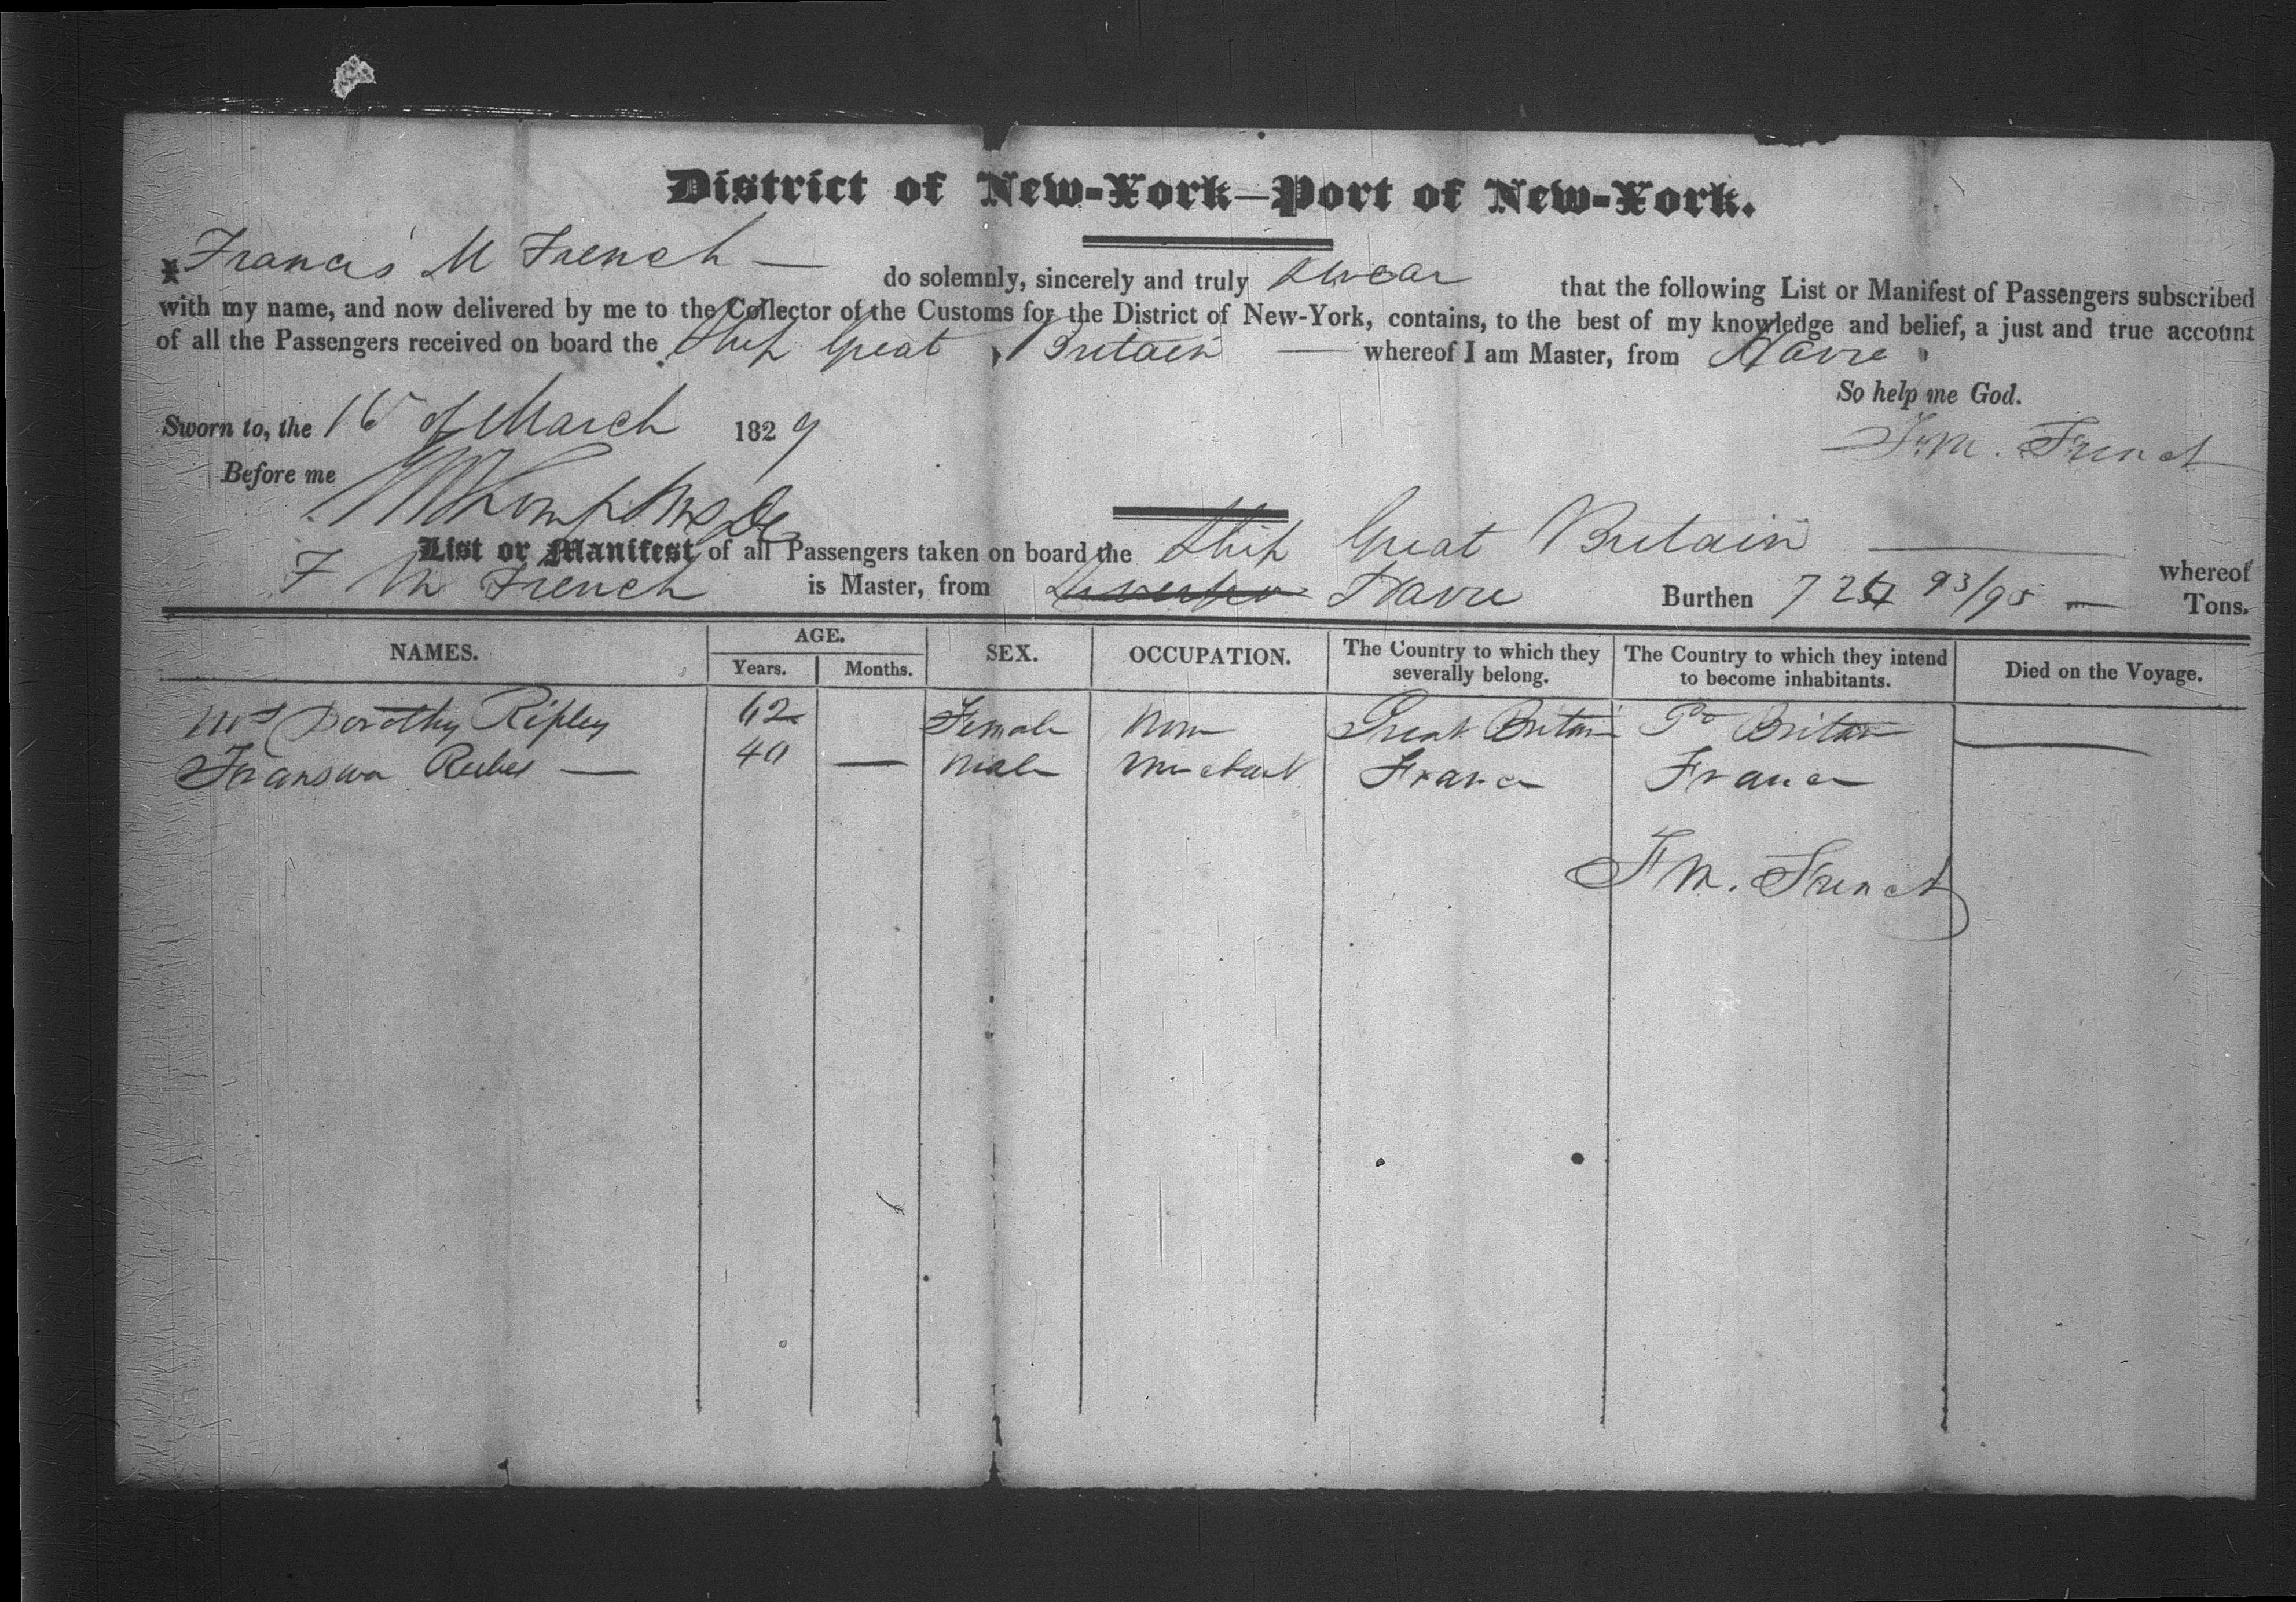 District of New-York—Port of New-York.
I Francis M French — do solemnly, sincerely and truly swear that the following List or Manifest of Passengers subscribed
with my name, and now delivered by me to the Collector of the Customs for the District of New-York, contains, to the best of my knowledge and belief, a just and true account
of all the Passengers received on board the Ship Great Britain — whereof I am Master, from Havre
So help me God.
Sworn to, the 16 of March 1829
F. M. French
Before me
List or Manifest of all Passengers taken on board the Ship Great Britain — whereof
F M French is Master, from Havre Burthen 724 93/95 — Tons.
NAMES. AGE. SEX. OCCUPATION. The Country to which they severally belong. The Country to which they intend to become inhabitants. Died on the Voyage.
Years. Months.
Mrs Dorothy Ripley 62 Female None Great Britain Gr Britain —
Franswa 40 — Male Merchant France France
F M. French